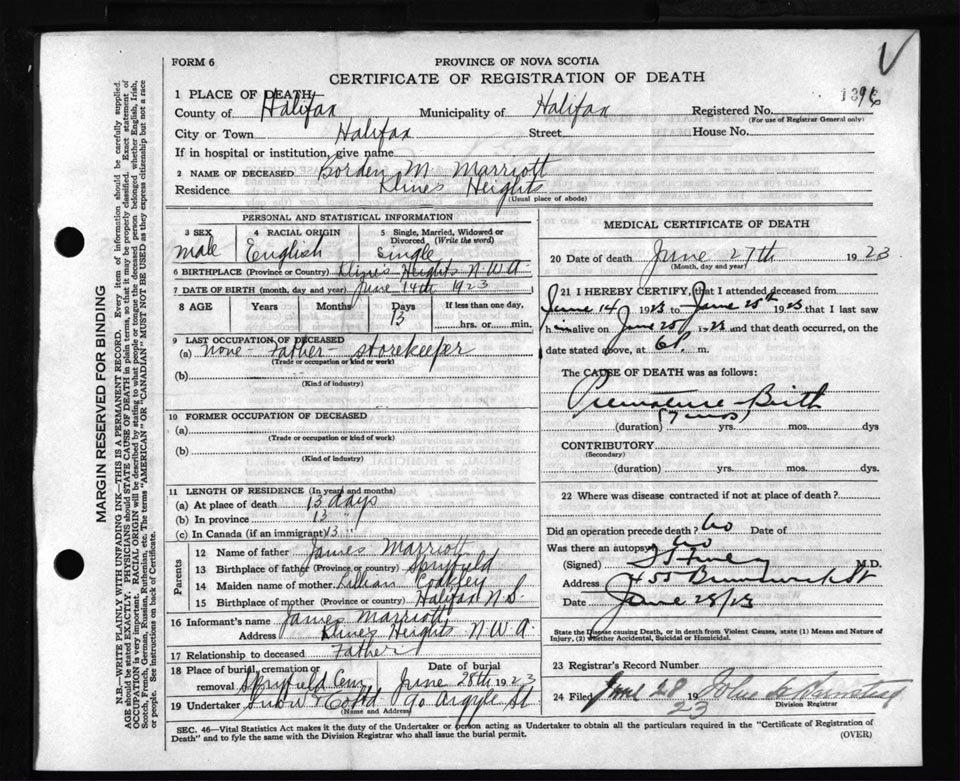 V
FORM 6
PROVINCE OF NOVA SCOTIA
CERTIFICATE OF REGISTRATION OF DEATH
1396
1 PLACE OF DEATH
County of Halifax Municipality of Halifax Registered No.
(For use of Registrar General only)
City or Town Halifax Street House No.
If in hospital or institution, give name
2 NAME OF DECEASED Borden M Marriott
Residence Klines Heights
(Usual place of abode)
PERSONAL AND STATISTICAL INFORMATION
3 SEX 4 RACIAL ORIGIN 5 Single, Married, Widowed or Divorced (Write the word)
male English Single
6 BIRTHPLACE (Province or Country) Klines Heights N.W.A.
7 DATE OF BIRTH (month, day and year) June 14th 1923
8 AGE Years Months Days If less than one day,
13 hrs. or min.
9 LAST OCCUPATION OF DECEASED
(a) None - Father - storekeeper
(Trade or occupation or kind of work)
(b)
(Kind of industry)
10 FORMER OCCUPATION OF DECEASED
(a)
(Trade or occupation or kind of work)
(b)
(Kind of industry)
11 LENGTH OF RESIDENCE (In years and months)
(a) At place of death 13 days
(b) In province 13 "
(c) In Canada (if an immigrant) 13 "
Parents
12 Name of father James Marriott
13 Birthplace of father (Province or country) Spryfield
14 Maiden name of mother Lillian Coakley
15 Birthplace of mother (Province or country) Halifax N.S.
16 Informant's name James Marriott
Address Klines Heights N.W.A.
17 Relationship to deceased Father
18 Place of burial, cremation or removal Spryfield Cem Date of burial June 28th 1923
19 Undertaker Snow & Co Ltd 90 Argyle St
(Name and Address)
MEDICAL CERTIFICATE OF DEATH
20 Date of death June 27th 1923
(Month, day and year)
21 I HEREBY CERTIFY, that I attended deceased from
June 14 1923 to June 25th 1923 that I last saw
him alive on June 25 1923 and that death occurred, on the
date stated above, at 6 P. m.
The CAUSE OF DEATH was as follows:
Premature Birth
(7 mos)
(duration) yrs. mos. dys
CONTRIBUTORY
(Secondary)
(duration) yrs. mos. dys
22 Where was disease contracted if not at place of death?
Did an operation precede death? No Date of
Was there an autopsy No
(Signed) M.D.
Address 455 Brunswick St
Date June 28/23
State the Disease causing Death, or in death from Violent Causes, state (1) Means and Nature of
Injury, (2) whether Accidental, Suicidal or Homicidal.
23 Registrar's Record Number
24 Filed June 28 1923
Division Registrar
SEC. 46—Vital Statistics Act makes it the duty of the Undertaker or person acting as Undertaker to obtain all the particulars required in the "Certificate of Registration of
Death" and to fyle the same with the Division Registrar who shall issue the burial permit. (OVER)
MARGIN RESERVED FOR BINDING
N.B.—WRITE PLAINLY WITH UNFADING INK—THIS IS A PERMANENT RECORD. Every item of information should be carefully supplied.
AGE should be stated EXACTLY. PHYSICIANS should STATE CAUSE OF DEATH in plain terms, so that it may be properly classified. Exact statement of
OCCUPATION is very important. RACIAL ORIGIN will be described by stating to what people or tongue the deceased person belonged whether English, Irish,
Scotch, French, German, Russian, Ruthenian, etc. The terms "AMERICAN" or "CANADIAN" MUST NOT BE USED as they express citizenship but not a race
or people. See instructions on back of Certificate.